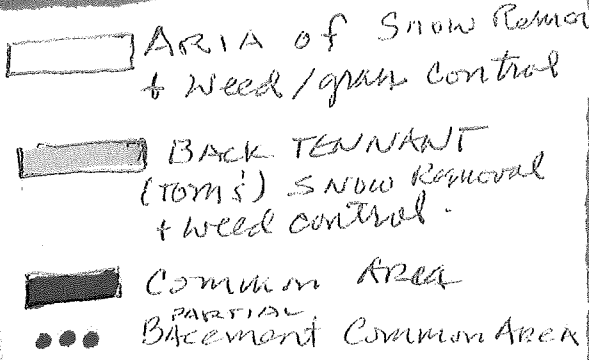 ARIA of Snow Remov
+ Weed/grass control
BACK TENNANT
(Tom's) SNOW Removal
+ weed control.
Common Area
PARTIAL
BAcemant Common Area